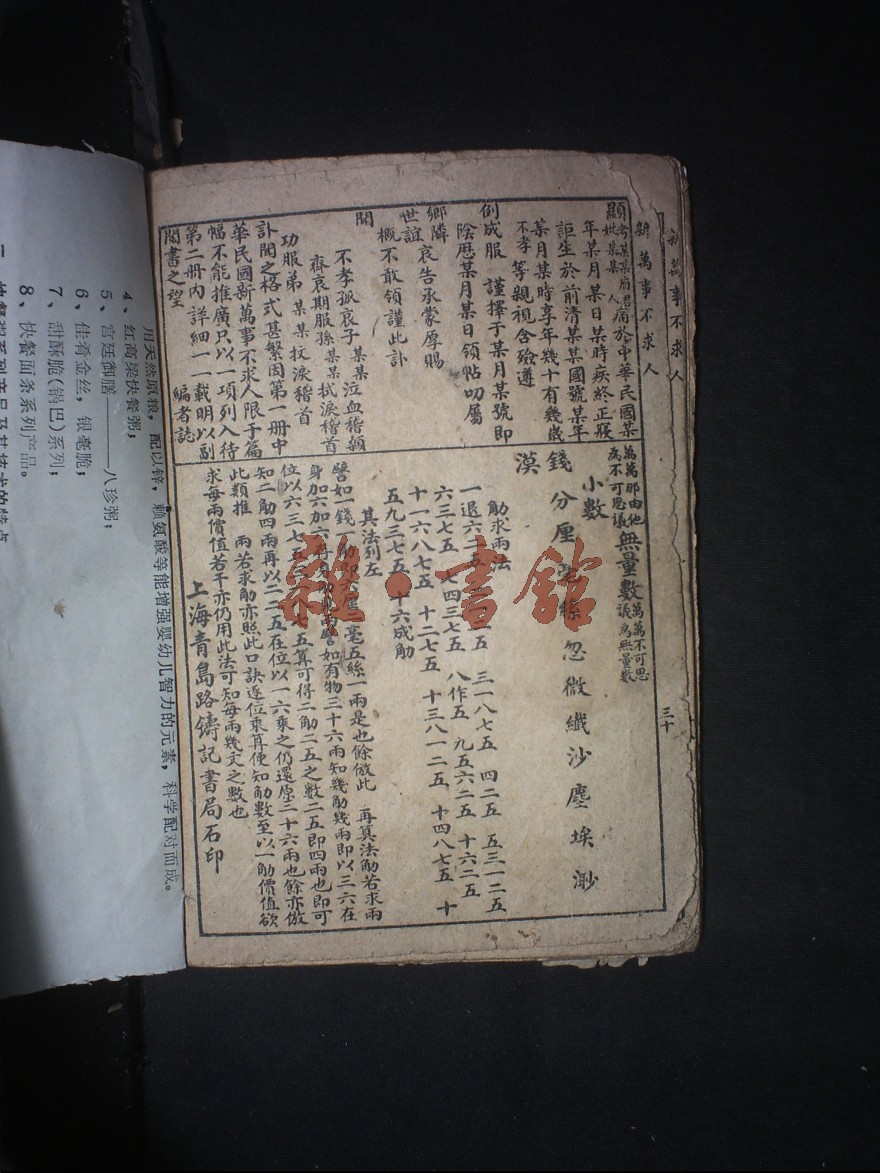 新萬事不求人
新萬事不求人
三十
顯考某某府君痛於中華民國某
妣某某人
年某月某日某時疾終正寢
詎生於前清某某國號某年
某月某時享年幾十有幾歲
不孝等親視含殮遵
例成服 謹擇于某月某號即
陰歷某月某日領帖叨屬
鄉隣
世誼哀告承蒙厚賜
概不敢領謹此訃
聞
不孝孤哀子某某泣血稽顙
齊衰期服孫某某拭淚稽首
功服弟某某抆淚稽首
訃聞之格式甚繁因第一册中
華民國新萬事不求人限于篇
幅不能推廣只以一項列入待
第二册內詳細一一載明以副
閱書之望 編者誌
萬萬那由他為不可思議 無量數 萬萬不可思議為無量數
小數
錢 分 厘 毫 絲 忽 微 纖 沙 塵 埃 渺
漠
觔求兩法
一退六二五 三一八七五 四二五 五三一二五
六三七五 七四三七五 八作五 九五六二五 十六二五
十一六八七五 十二七五 十三八一二五 十四八七五 十
五九三七五 十六成觔
其法列左
譬如一錢 毫五絲一兩是也餘倣此 再算法觔若求兩
身加六 如有物三十六兩知幾觔幾兩即以三六在
位以六三七五 七五算可得二觔二五之數二五即四兩也即可
知二觔四兩再以二二五在位以一六乘之仍還原三十六兩也餘亦倣
此類推 兩若求觔亦照此口訣逐位乘算便知觔數至以一觔價值欲
求每兩價值若干亦仍用此法可知每兩幾文之數也
上海青島路鑄記書局石印
雜·書館
用天然原粮，配以锌，赖氨酸等能增强婴幼儿智力的元素，科学配对而成。
4、红高粱快餐粥；
5、宫廷御膳——八珍粥；
6、佳肴金丝，银毫脆；
7、甜酥脆（锅巴）系列；
8、快餐面条系列产品。